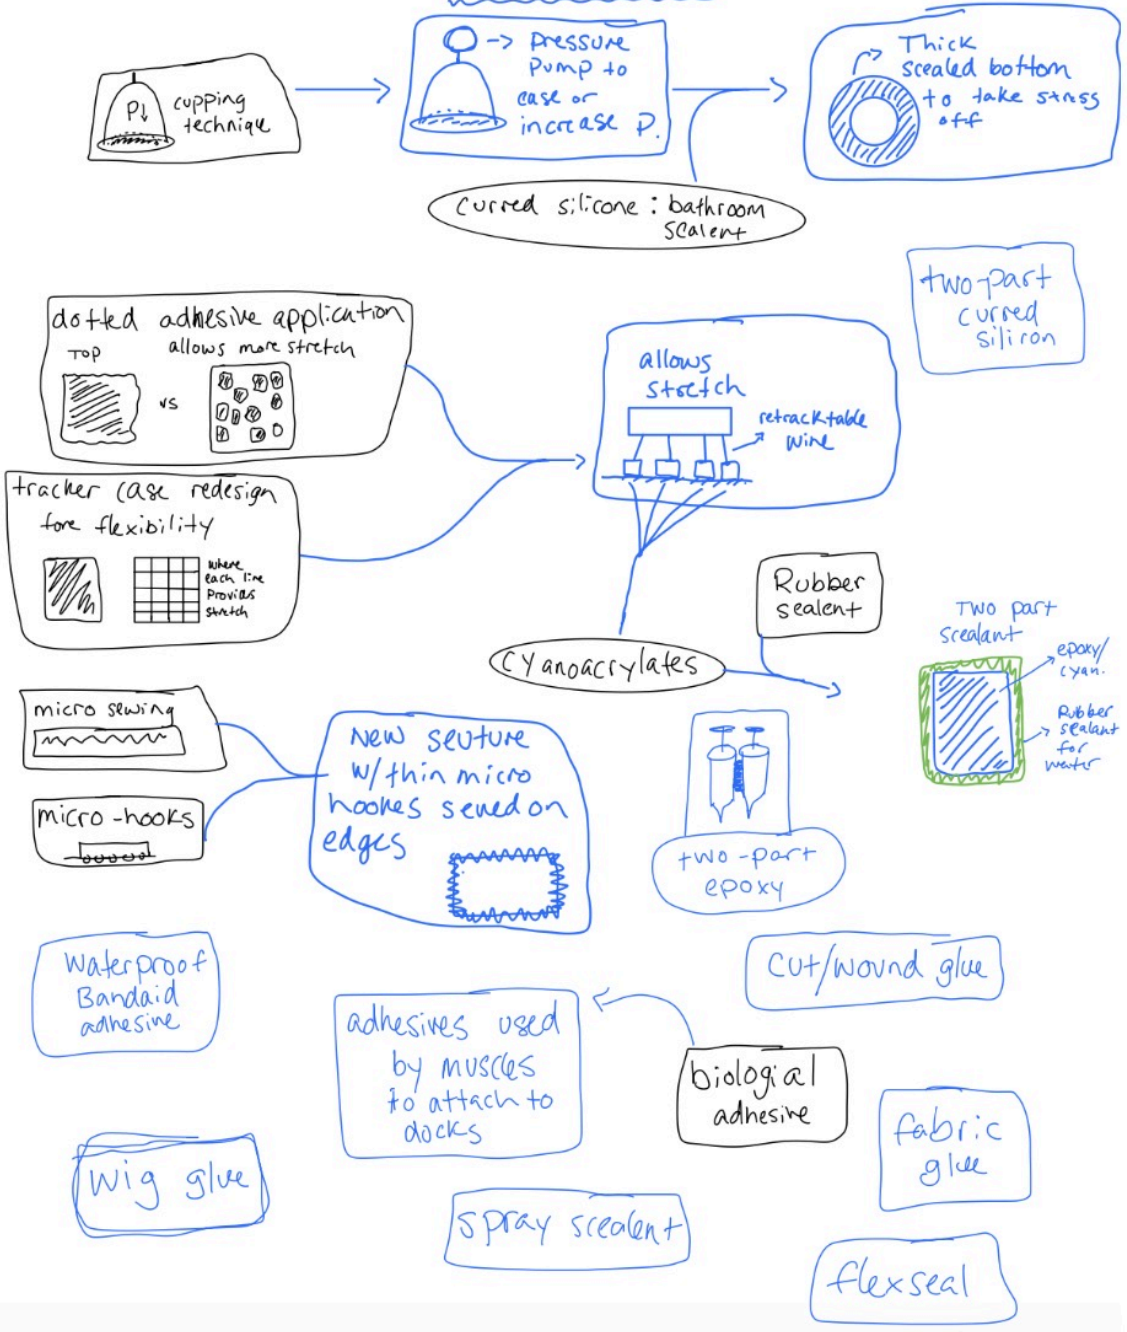 P↓ cupping
technique
-> pressure
pump to
ease or
increase P.
Thick
scealed bottom
to take stress
off
curred silicone : bathroom
scalent
two-part
curred
siliron
dotted adhesive application
TOP
allows more stretch
vs
allows
stretch
retracktable
wire
tracker case redesign
fore flexibility
where
each line
Provids
stretch
Rubber
sealent
cyanoacrylates
Two part
scealant
epoxy/
cyan.
Rubber
sealant
for
water
micro sewing
micro-hooks
New seuture
w/thin micro
hookes sewed on
edges
two-part
epoxy
waterproof
Bandaid
adhesive
cut/wound glue
adhesives used
by muscles
to attach to
docks
biological
adhesive
fabric
glue
wig glue
spray scealent
flexseal